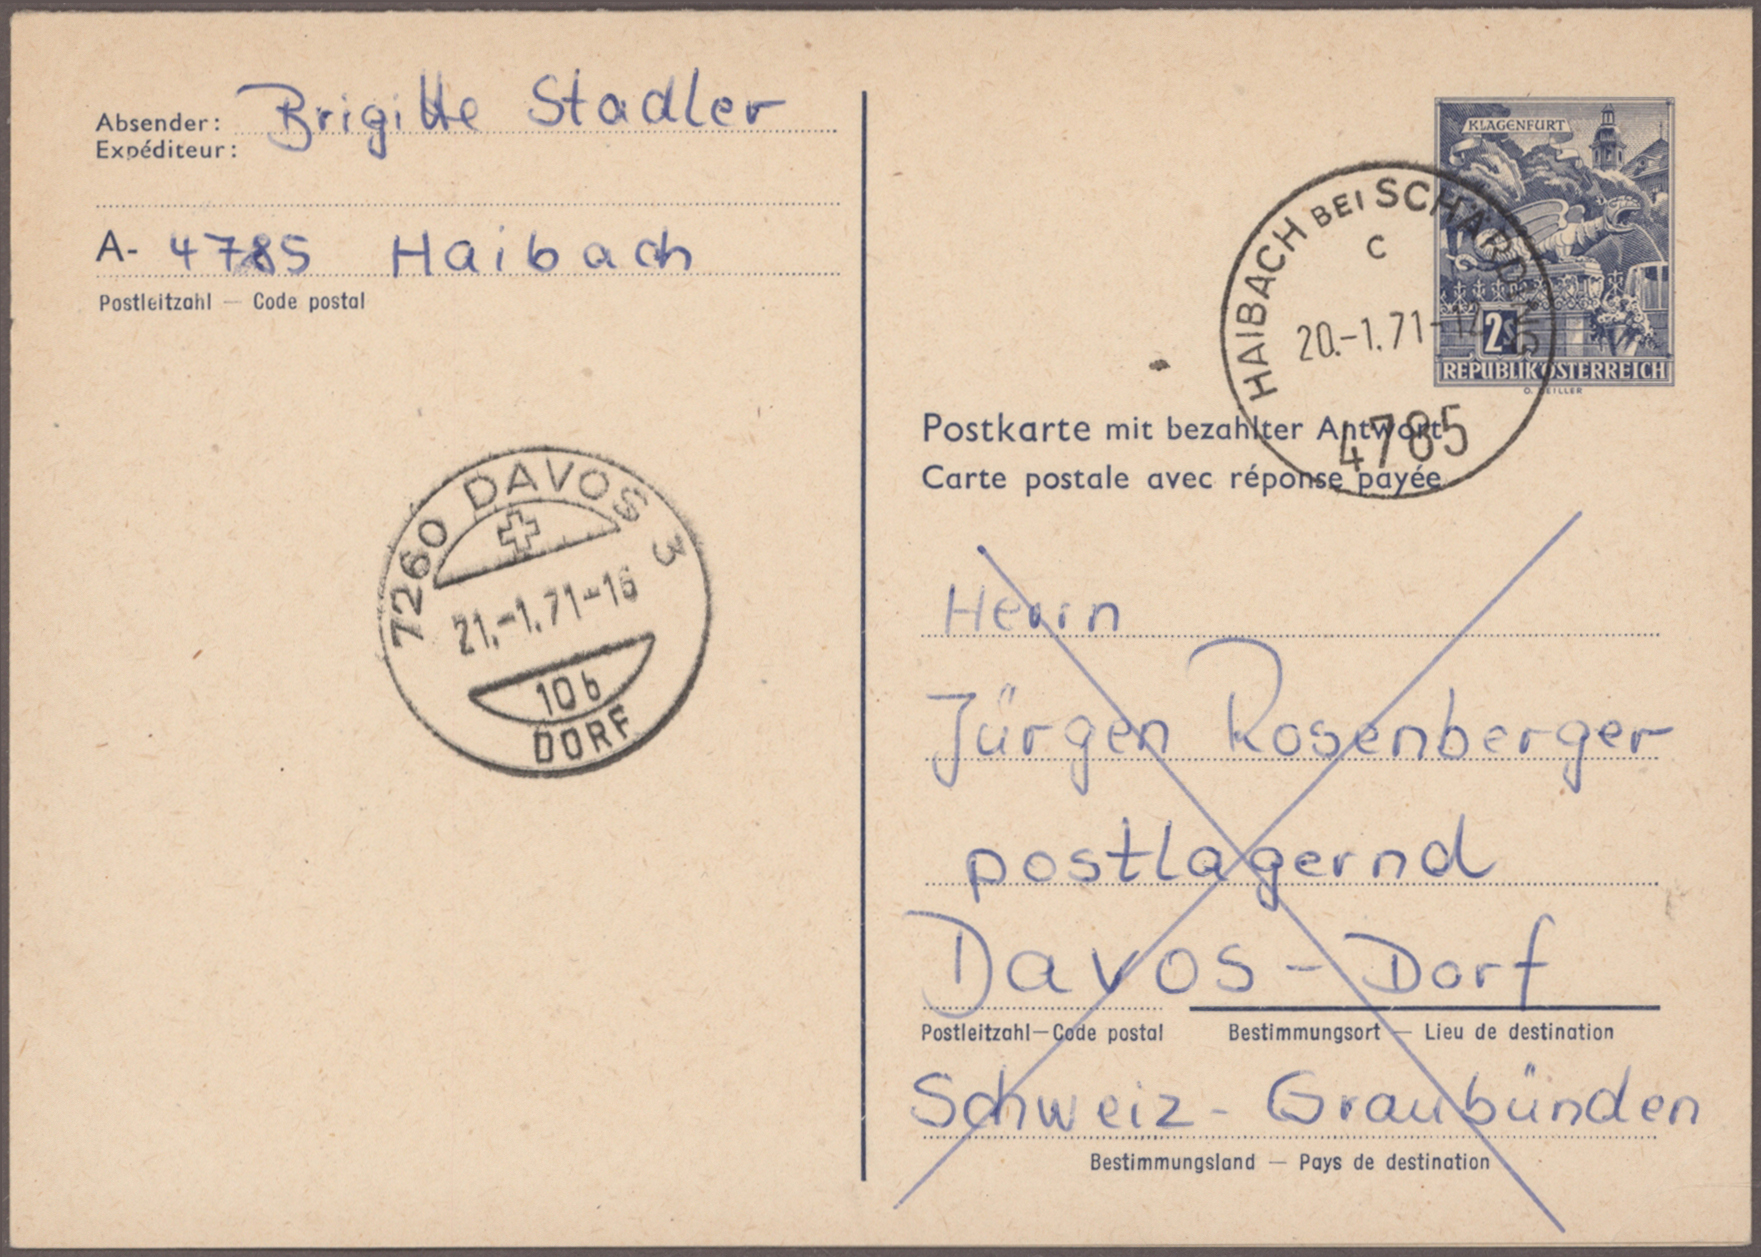 Absender: Brigitte Stadler
Expéditeur:
A- 4785 Haibach
Postleitzahl — Code postal
KLAGENFURT
2S
REPUBLIK ÖSTERREICH
HAIBACH BEI SCHÄRDING
c
20.-1.71-12
4785
Postkarte mit bezahlter Antwort
Carte postale avec réponse payée
7260 DAVOS 3
21.-1.71-16
10b
DORF
Herrn
Jürgen Rosenberger
postlagernd
Davos - Dorf
Postleitzahl—Code postal Bestimmungsort — Lieu de destination
Schweiz - Graubünden
Bestimmungsland — Pays de destination